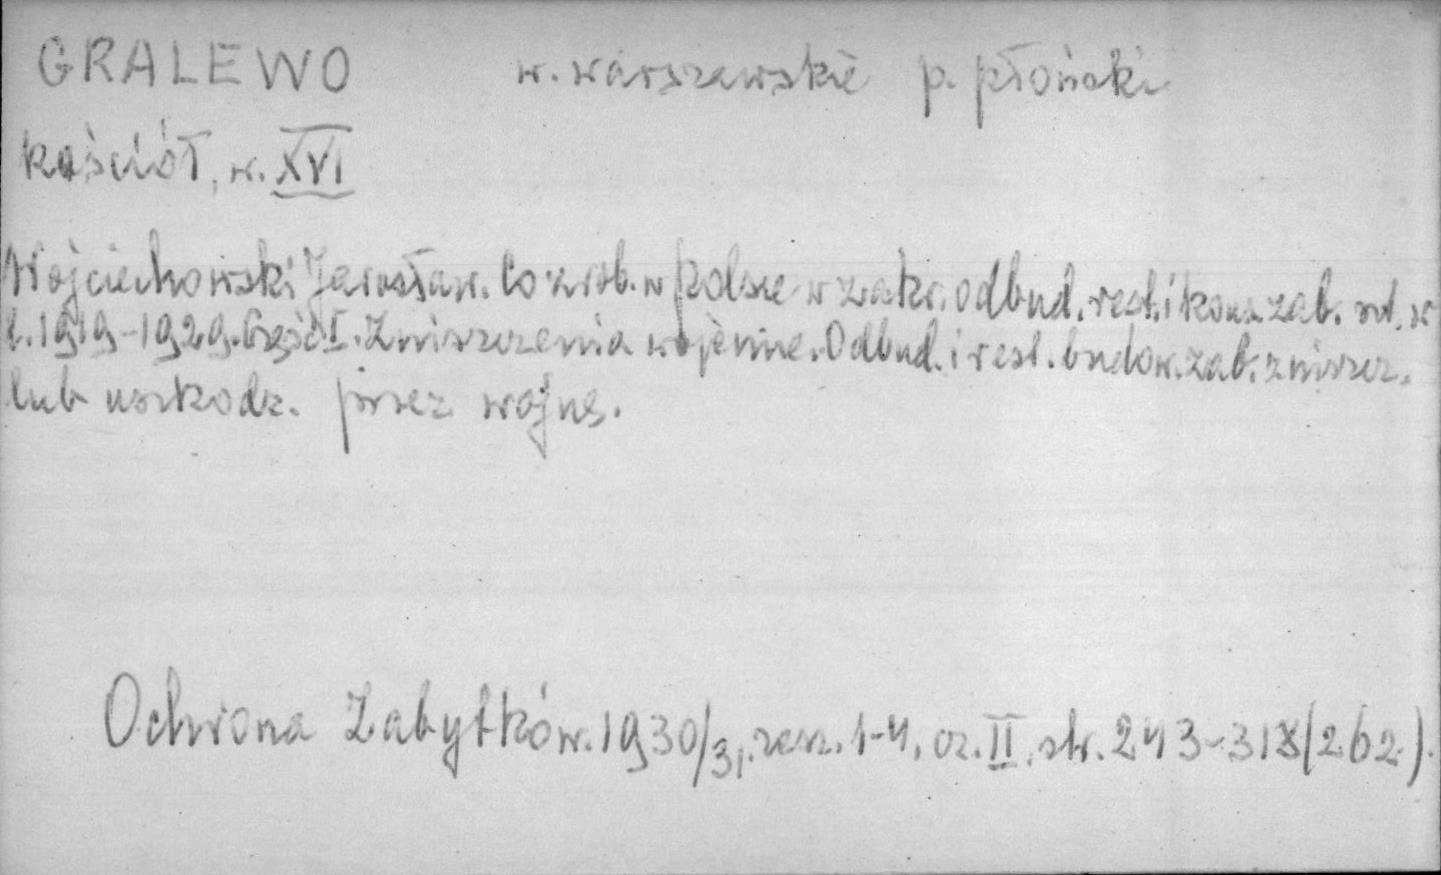 GRALEWO w. warszawskie p. płoński
kościół, w. XVI
Wojciechowski Jarosław. Co zrob. w Polsce w zakr. odbud. rest. i kons. zab. szt. w
l. 1919-1929. Część I. Zniszczenia wojenne. Odbud. i rest. budow. zab. zniszcz.
lub uszkodz. przez wojnę.
Ochrona Zabytków. 1930/31. zesz. 1-4, cz. II, str. 243-318 (262).